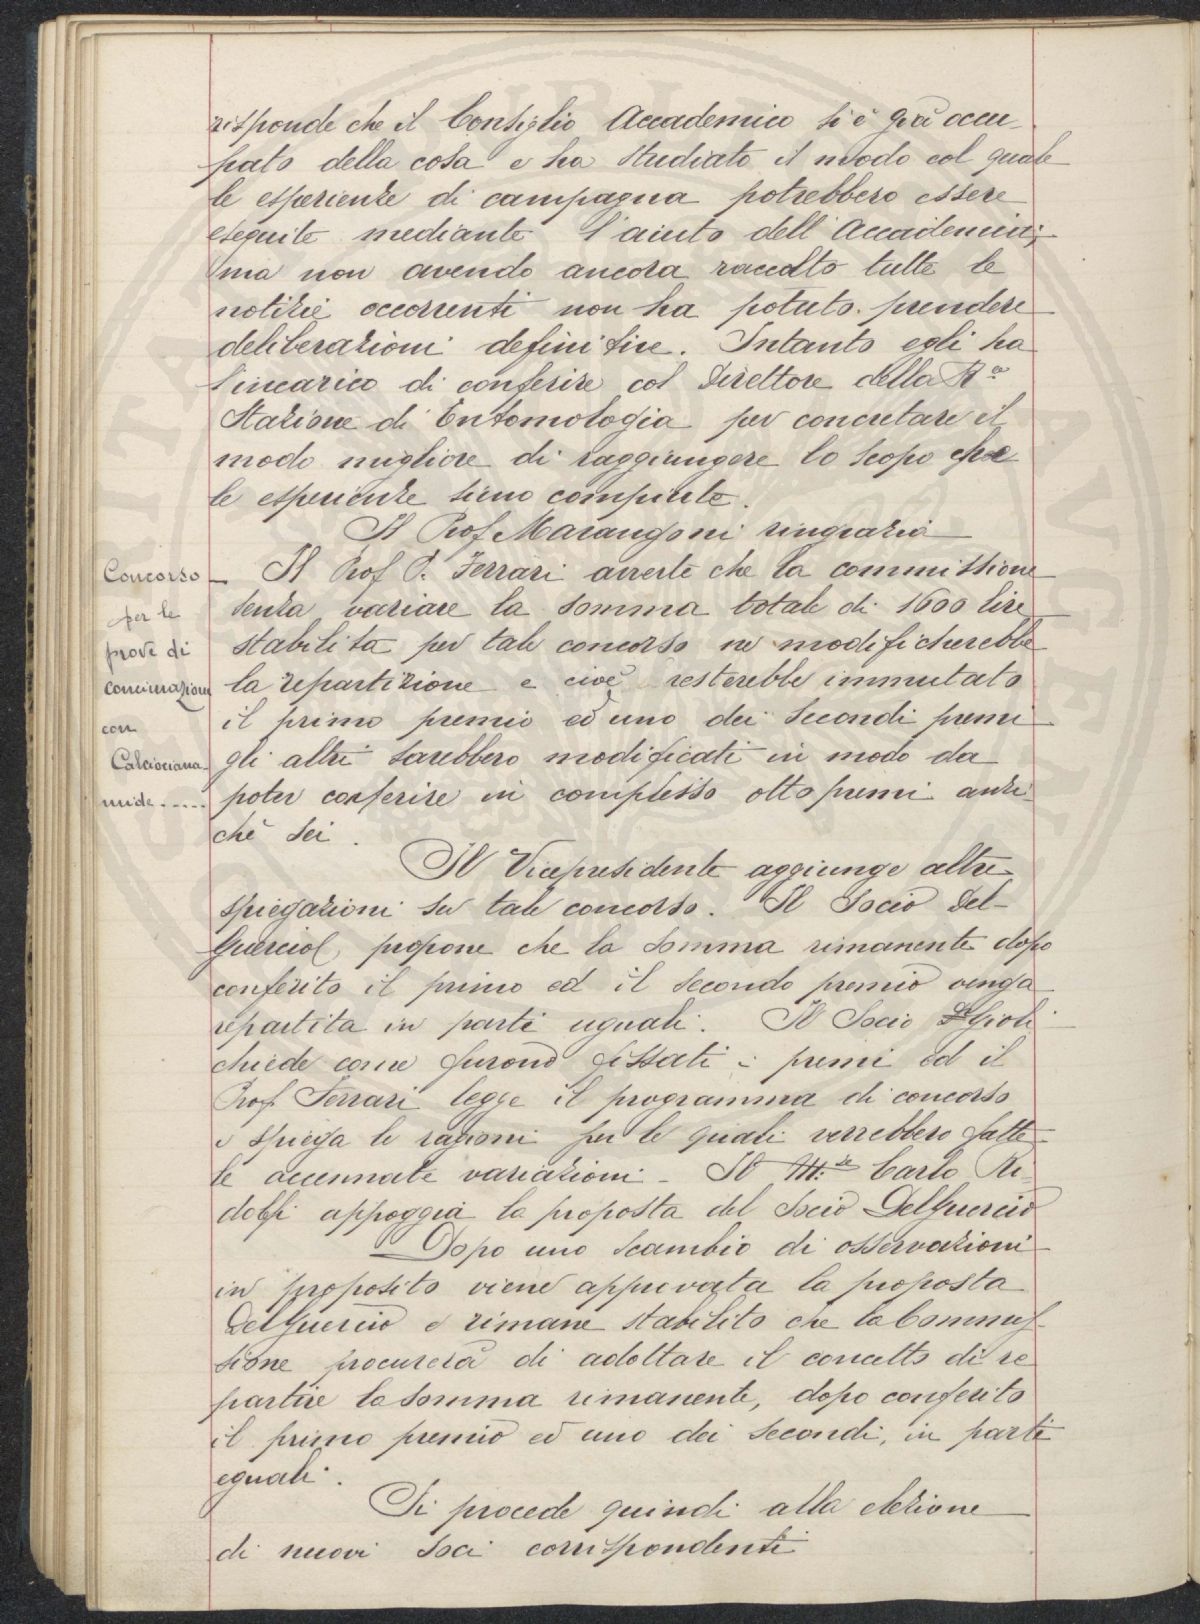 risponde che il Consiglio Accademico si è già occu-
pato della cosa e ha studiato il modo col quale
le esperienze di campagna potrebbero essere
eseguite mediante l'aiuto dell'Accademia;
ma non avendo ancora raccolto tutte le
notizie occorrenti non ha potuto prendere
deliberazioni definitive. Intanto egli ha
l'incarico di conferire col Direttore della Rª
Stazione di Entomologia per concretare il
modo migliore di raggiungere lo scopo che
le esperienze sieno compiute.
Il Prof. Marangoni ringrazia
Concorso
per le
prove di
concimazione
con
Calciociana-
mide.....
Il Prof. P. Ferrari avverte che la commissione
senza variare la somma totale di 1600 lire
stabilita per tale concorso ne modificherebbe
la repartizione e cioè resterebbe immutato
il primo premio ed uno dei secondi premi
gli altri sarebbero modificati in modo da
poter conferire in complesso otto premi anzi-
chè sei.
Il Vicepresidente aggiunge altre
spiegazioni su tale concorso. Il Socio Del-
Guercio propone che la somma rimanente dopo
conferito il primo ed il secondo premio venga
repartita in parti uguali. Il Socio Gioli
chiede come furono fissati i premi ed il
Prof. Ferrari legge il programma di concorso
e spiega le ragioni per le quali verrebbero fatte
le accennate variazioni - Il M.se Carlo Ri-
dolfi appoggia la proposta del Socio DelGuercio
Dopo uno scambio di osservazioni
in proposito viene approvata la proposta
DelGuercio e rimane stabilito che la Commis-
sione procurerà di adottare il concetto di re
partire la somma rimanente, dopo conferito
il primo premio ed uno dei secondi, in parti
eguali.
Si procede quindi alla elezione
di nuovi soci corrispondenti